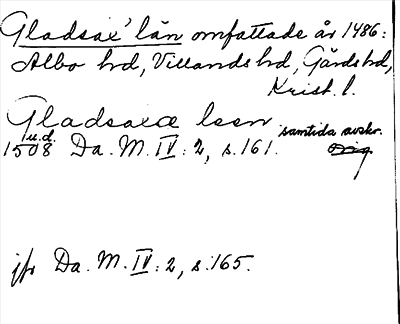 Gladsax' län omfattade år 1486:
Albo hrd, Villands hrd, Gärds hrd,
Krist. l.
Gladsaxæ leen samtida avskr.
u.d.
1508 Da. M. IV: 2, s. 161. Orig.
jfr Da. M. IV: 2, s. 165.